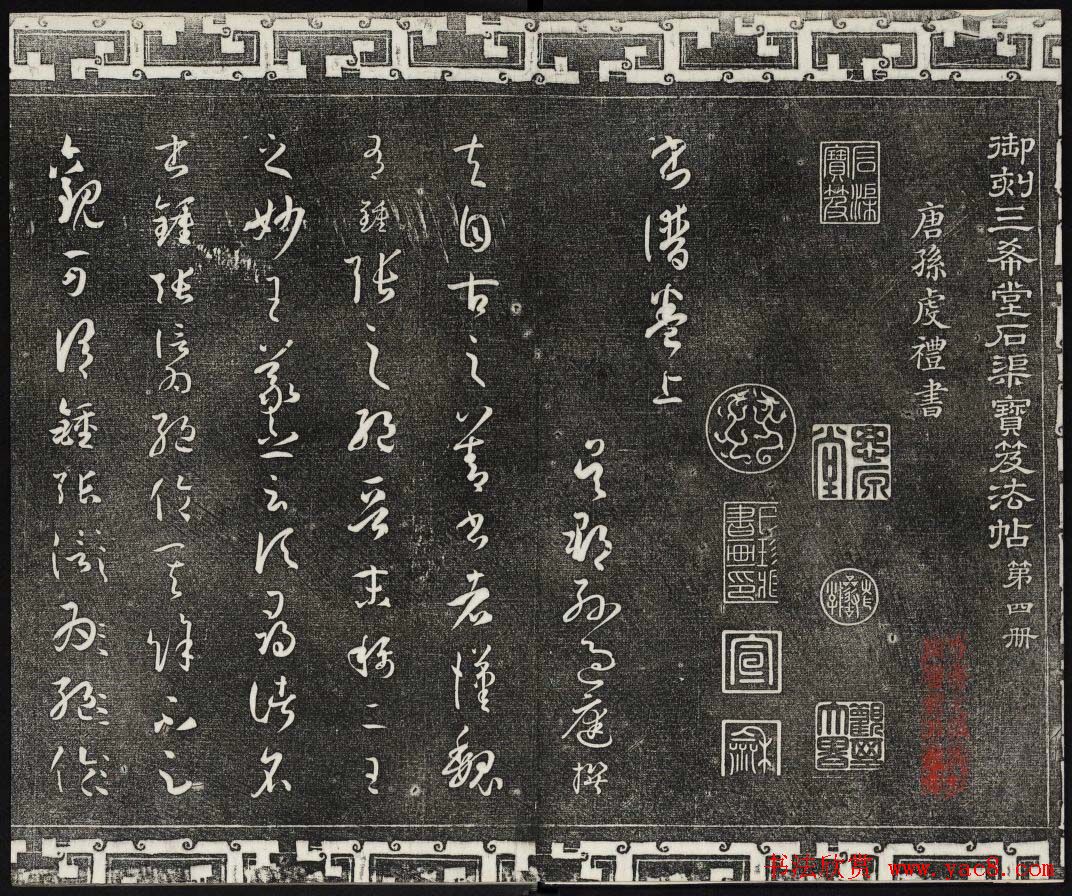 御刻三希堂石渠寶笈法帖第四冊
唐孫虔禮書
石渠寶笈
書譜卷上
宣
龢
吳郡孫過庭撰
夫自古之善書者漢魏
有鍾張之絕晉末稱二王
之妙王羲之云頃尋諸名
書鍾張信為絕倫其餘不足
觀可謂鍾張信為絕倫
书法欣赏 www.yac8.com